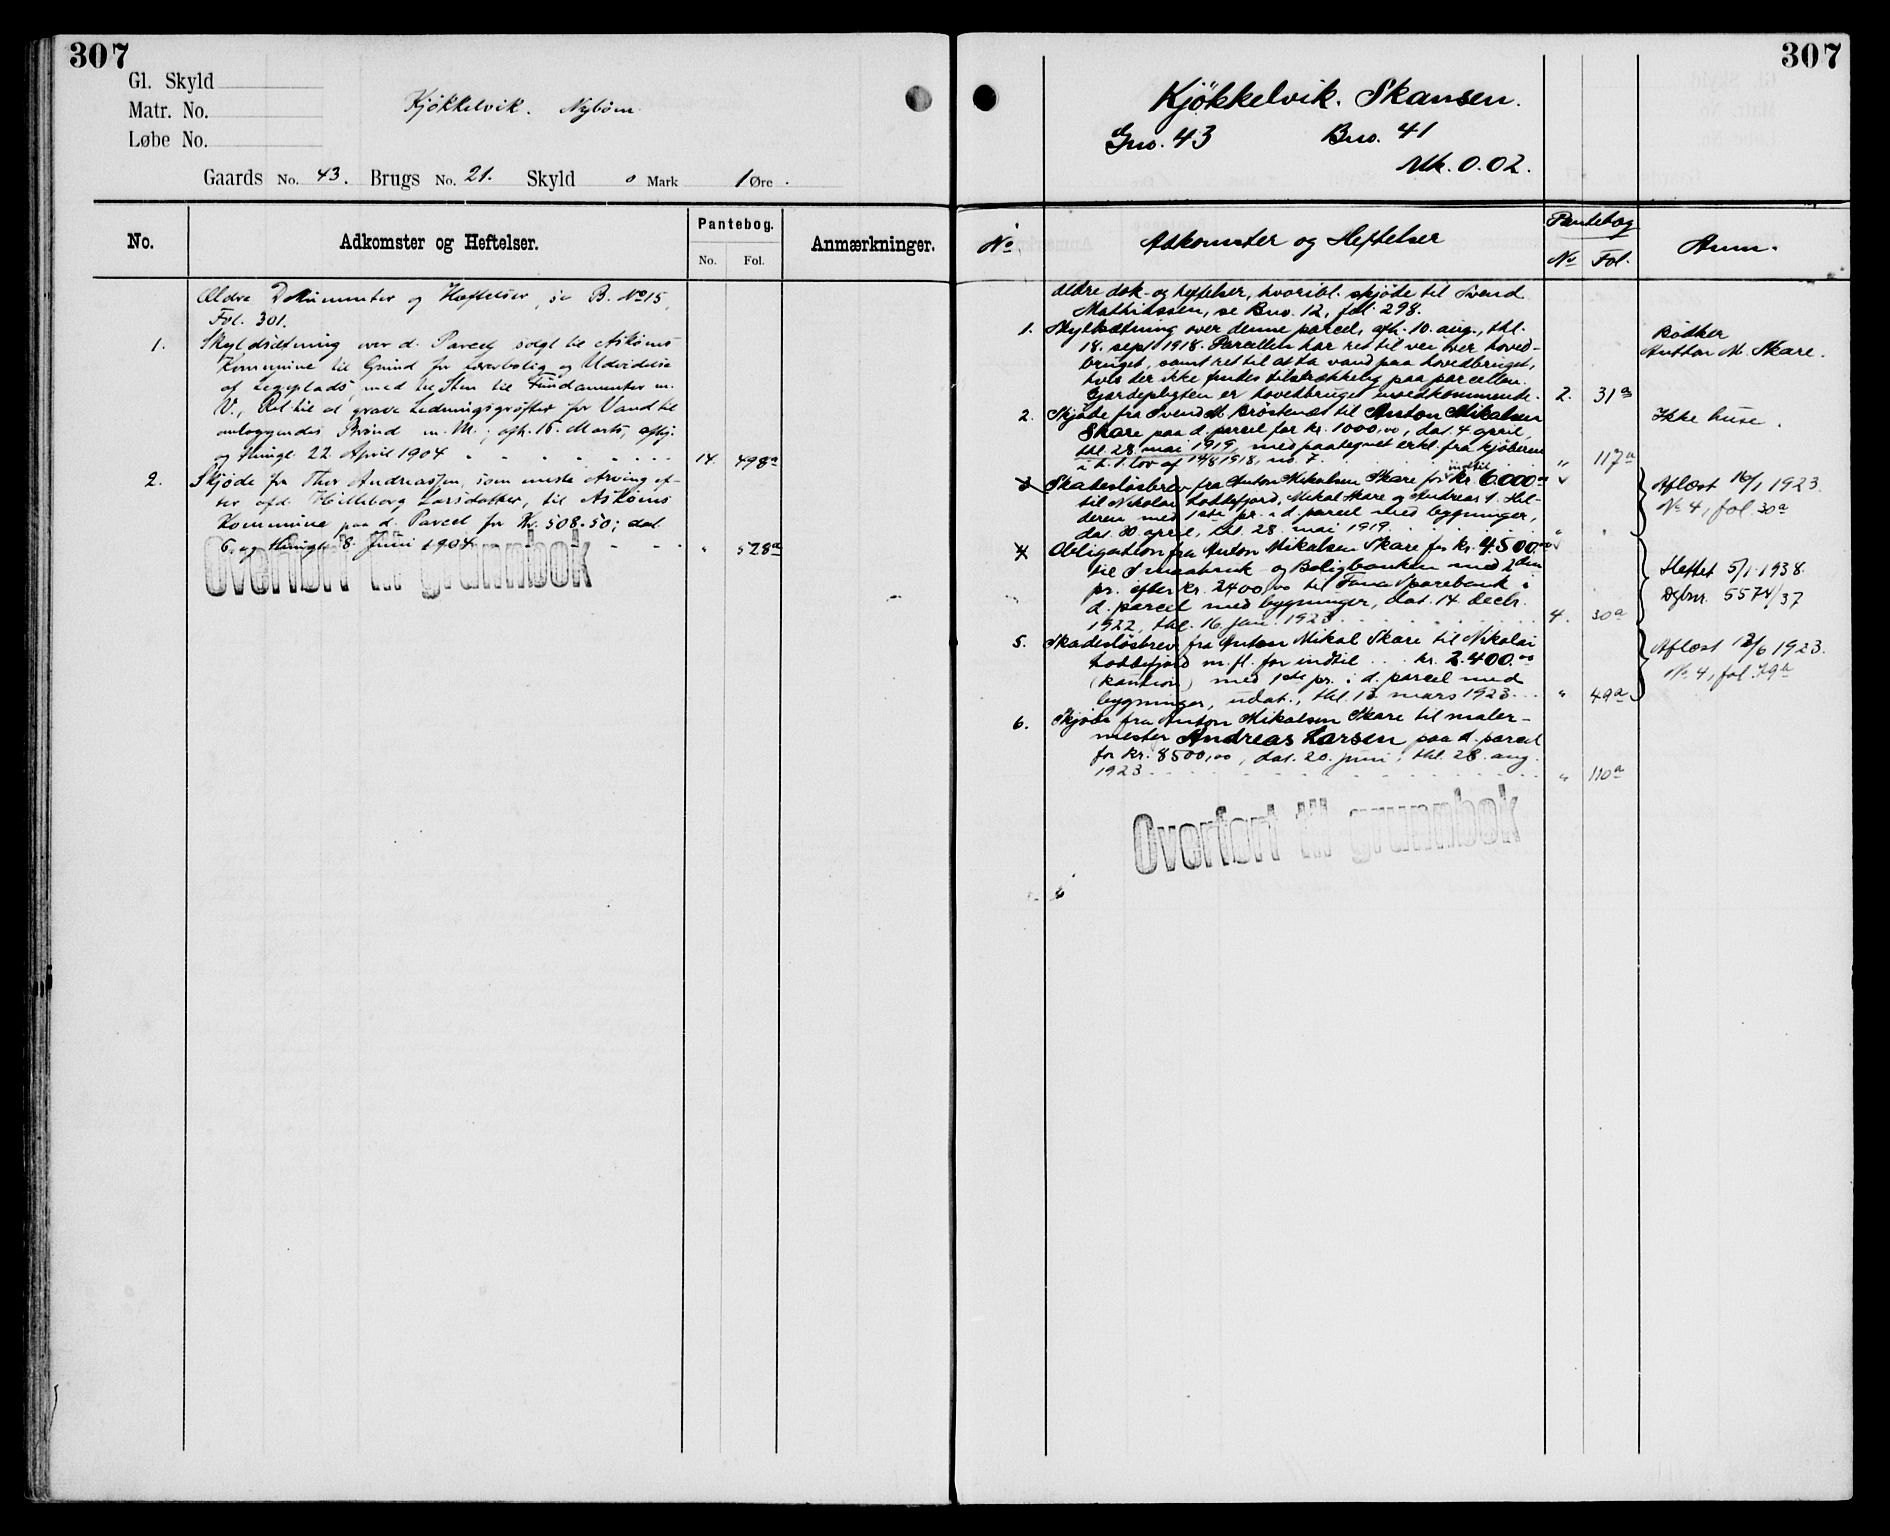 307
Gl. Skyld
Matr. No.
Løbe No.
Kjøkkelvik. Nybøm
Gaards No. 43. Brugs No. 21. Skyld 0 Mark 1 Øre.
No.
Adkomster og Heftelser.
Pantebog.
No. Fol.
Anmærkninger.
Ældre Dokumenter og Hæftelser, se B. No 15,
Fol. 301.
1. Skyldsætning over d. Parcel solgt til Askøens
Kommune til Grund for Lærerbolig og Udvidelse
af Legeplads, med til Sten til Fundamenter m.
V., Ret til at grave Ledningsgrøfter for Vand til
omliggendes Brønd m. M.; afh. 15. Marts, afhj.
og thingl. 22. April 1904 14. 498a
2. Skjøde fra Thor Andreassen, som eneste Arving ef-
ter afd. Hilleborg Larsdatter, til Askøens
Kommune paa d. Parcel for Kr. 508.50; dat.
6. og thingl. 8. Juni 1904 " 528a
Overført til grunnbok
307
Kjökkelvik. Skansen.
Gno. 43 Bno. 41
Mk. 0.02.
No
Adkomster og Heftelser
Pantebog
No Fol.
Anm.
Ældre dok- og heftelser, hvoribl. skjøde til Svend
Mathiassen, se Bno. 12, fol. 298.
1. Skyldsætning over denne parcel, afh. 10. aug., thl.
18. sept 1918. Parcellen har ret til vei over hoved-
bruget, samt ret til at ta vand paa hovedbruget,
hvis der ikke findes tilstrækkelig paa parcellen.
Gjærdepligten er hovedbruget uvedkommende. 2. 31a
Bødker
Anthon M. Skare.
2. Skjøde fra Svend M. Brøstenæs til Anton Mikalsen
Skare paa d. parcel for kr. 1000,00, dat. 4 april,
thl. 28. mai 1919, med paategnet erkl. fra kjøberen
i h. t. lov af 14/8 1918, no. 7. " 117a
Ikke huse.
3 Skadesløsbrev fra Anton Mikalsen Skare for indtil kr. 6000.00
til Nikolai Loddefjord, Mikal Skare og Andreas S. Hil-
deren med 1ste pr. i d. parcel med bygninger,
dat. 30 april, thl. 28. mai 1919. " "
Aflæst 16/1 1923.
No 4, fol. 30a
4 Obligation fra Anton Mikalsen Skare for kr. 4500.00
til Smaabruk- og Boligbanken med 2den
pr. efter kr. 2400,00 til Fana Sparebank i
d. parcel med bygninger, dat. 14. decbr.
1922, thl. 16. jan. 1923 4. 30a
Slettet 5/1 1938.
Dgbnr. 5574/37
5. Skadesløsbrev fra Anton Mikal Skare til Nikolai
Loddefjord m. fl. for indtil kr. 2.400.00
(kaution) med 1ste pr. i d. parcel med
bygninger, udat., thl. 13. mars 1923. " 49a
Aflæst 12/6 1923.
No 4, fol. 79a
6. Skjøde fra Anton Mikalsen Skare til maler-
mester Andreas Larsen paa d. parcel
for kr. 8500,00, dat. 20. juni, thl. 28. aug.
1923 " 110a
Overført til grunnbok